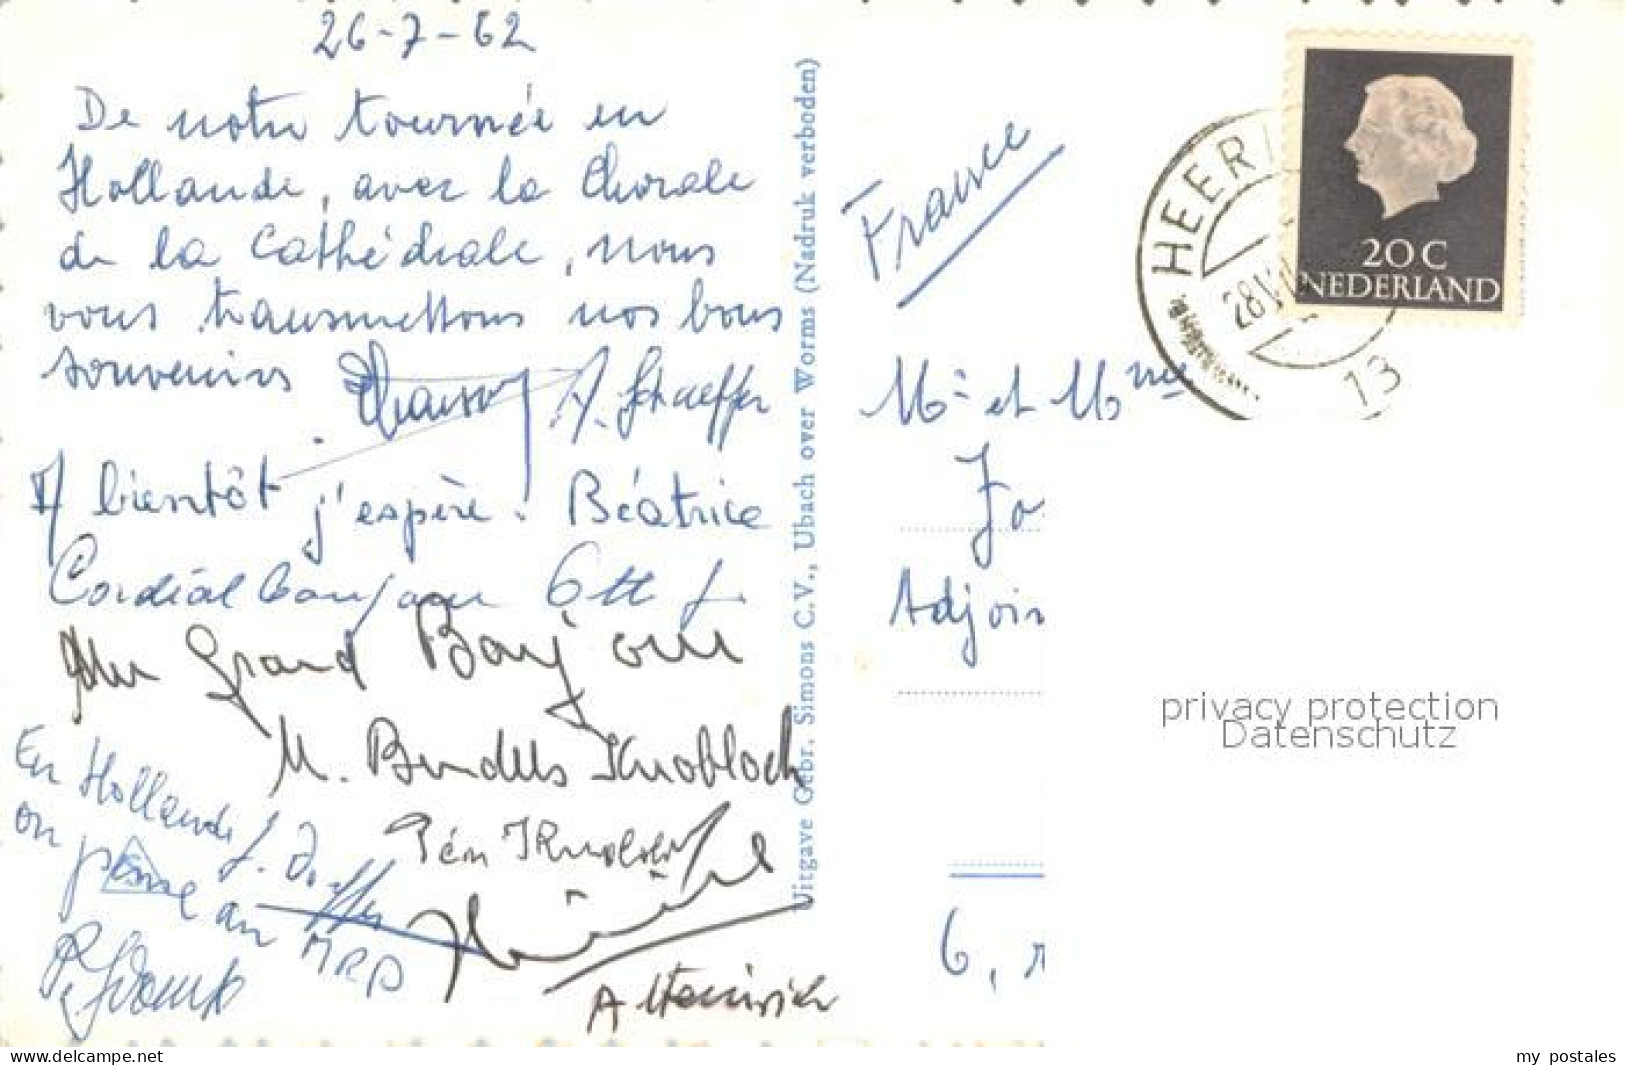 26-7-62
De notre tournée en
Hollande, avec la Chorale
de la Cathédrale, nous
vous transmettons nos bons
souvenirs
A. Schaeffer
A bientôt j'espère. Béatrice
Cordial bonjour
Un grand Bonjour
M. Knobloch
En Hollande
on pense au MRP
A
Uitgave Gebr. Simons C.V., Ubach over Worms (Nadruk verboden)
France
HEER
28 VII
13
20 C
NEDERLAND
Mr et Mme
Ja
Adjoin
6, r
privacy protection
Datenschutz
my postales
https://www.delcampe.net